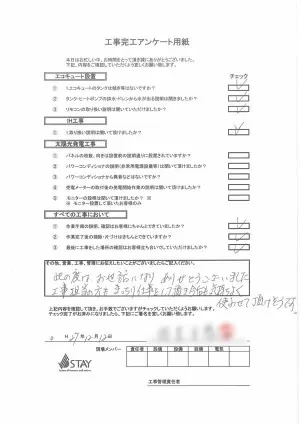 工事完工アンケート用紙
本日はお忙しい中、お時間をとって頂き誠にありがとうございました。
下記、内容をご確認していただくよう宜しくお願い致します。
エコキュート設置
チェック
① 1.エコキュートのタンクは傾き等はないですか?
② タンク・ヒートポンプの排水・ドレンから水が出る説明は聞きましたか?
③ リモコンの取り扱い説明は聞いていただけましたか?
IH工事
① 1.取り扱い説明は聞いて頂けましたか?
太陽光発電工事
① パネルの枚数、向きは図面の説明通りに設置されていますか?
② パワーコンディショナの説明(非常用電源装備等)は聞いて頂けましたか?
③ パワーコンディショナから異音などはないですか?
④ 売電メーターの取付後の発電開始作業の説明は聞いて頂けましたか?
⑤ モニターの説明は聞いて頂けましたか? ※
※ モニター設置して頂いたお客様のみ
すべての工事において
① 作業手順の説明、確認はお客様にちゃんとできていましたか?
② 作業完了後の掃除・片づけはきちんとできていますか?
③ 最後に工事をした場所の確認はお客様立ち合いでしていただけましたか?
その他、営業、工事、管理にお伝えしたいことがございましたらご記入ください。
此の度は、お世話になり ありがとうございました
工事担当の方も きっちり仕事をして頂き
使わせて頂けそうです。
上記内容を確認して頂き、お手数でございますがチェックしていただくようお願いします。
チェック完了がお済みになりましたら、下記にご署名を宜しくお願い致します。
H 27年12月12日
現場メンバー
責任者 設備 設備 設備 電気
STAY
工事管理責任者